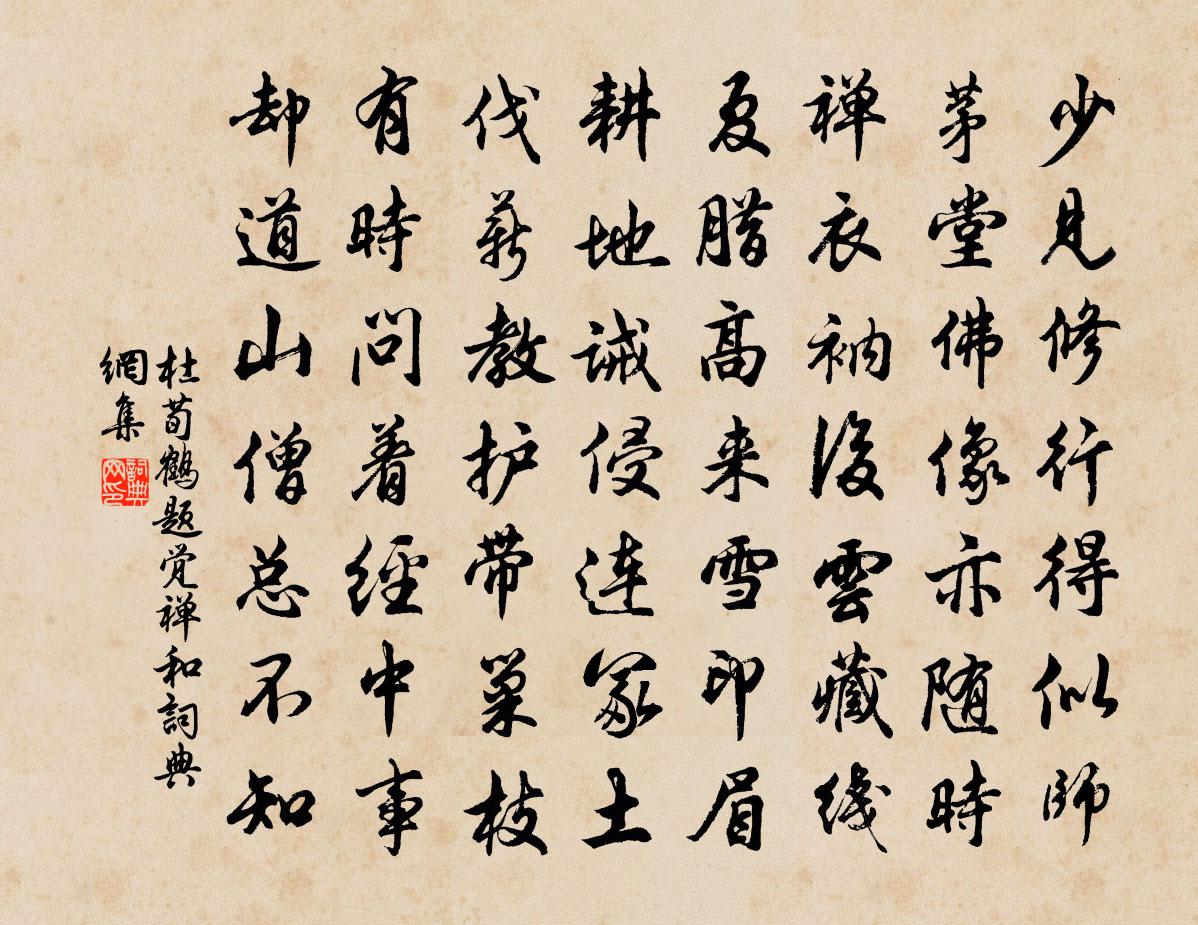 少見修行得似師
茅堂佛像亦随時
禅衣衲後雲藏线
夏腊高来雪印眉
耕地誡侵连冢土
伐薪教护带巢枝
有時问着經中事
却道山僧总不知
杜荀鶴题觉禅和詞典
網集
詞典
网印